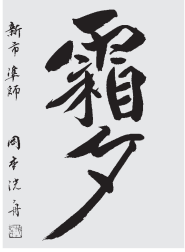 霜夕
新市準師
岡本洸舟